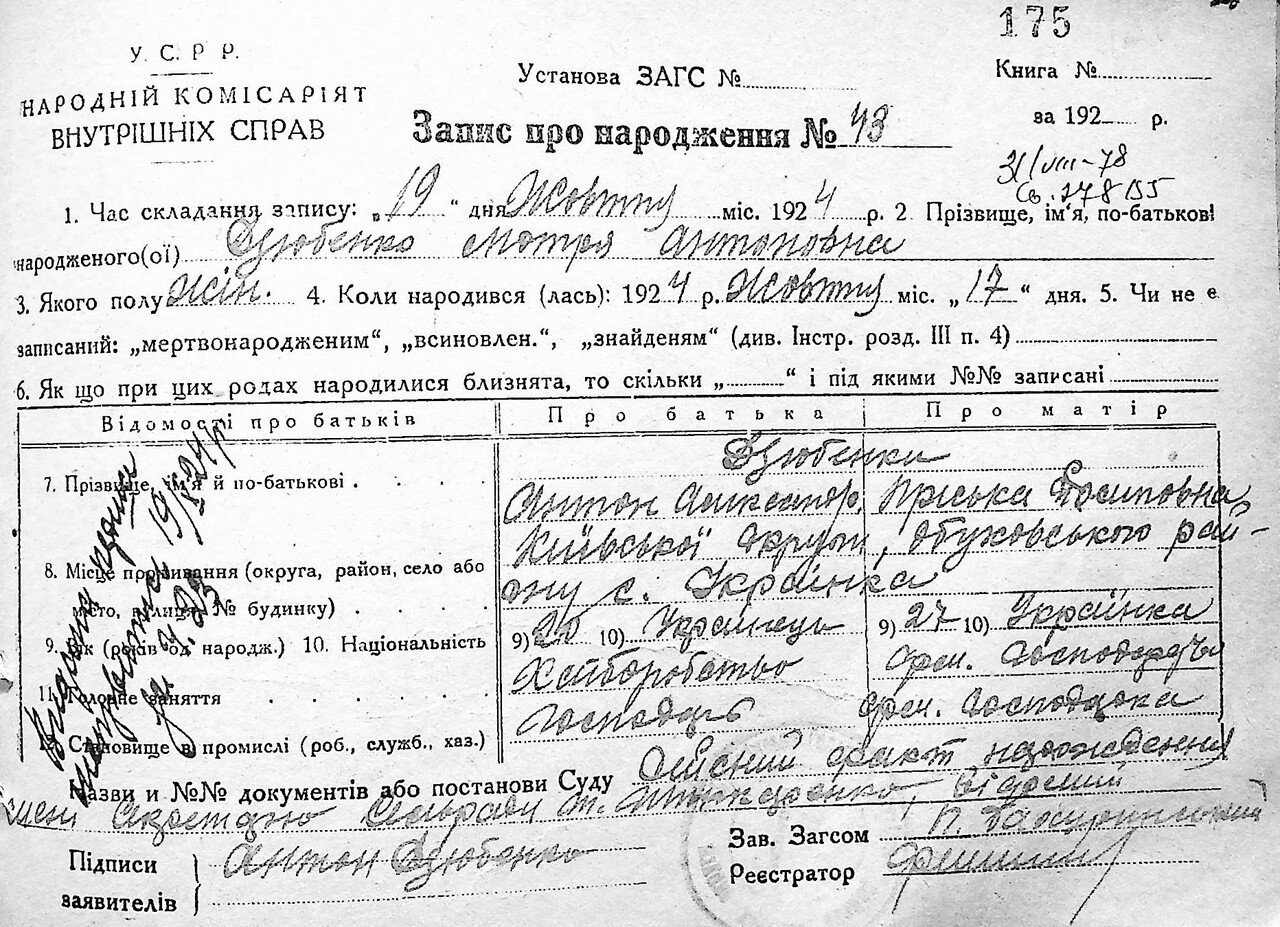 175
У. С. Р Р.
НАРОДНІЙ КОМІСАРІЯТ
ВНУТРІШНІХ СПРАВ
Установа ЗАГС №
Книга №
за 192 р.
Запис про народження № 43
31/VIII-78
1. Час складання запису: „19“ дня Жовтня міс. 1924 р. 2 Прізвище, ім'я, по-батькові
народженого(ої) Дзюбенко Мотря Антоновна
3. Якого полу жін. 4. Коли народився (лась): 1924 р. Жовтня міс. „17“ дня. 5. Чи не є
записаний: „мертвонародженим“, „всиновлен.“, „знайденям“ (див. Інстр. розд. III п. 4)
6. Як що при цих родах народилися близнята, то скільки „ “ і під якими №№ записані
Відомості про батьків Про батька Про матір
Дзюбенки
7. Прізвище, ім'я й по-батькові . . . .
Антон Александр. Пріська Йосиповна
Київської Округи, Обуховського рай-
8. Місце проживання (округа, район, село або
ону с. Українка
місто, вулиця, № будинку) . . . .
9. Вік (років од народж.) 10. Національність
9) 10) Украінець 9) 27 10) Українка
11. Головне заняття . . . .
Хліборобство
Господарь
12. Становище в промислі (роб., служб., хаз.)
Назви и №№ документів або постанови Суду
Дійсний факт народження
Сельради т.
Підписи
заявителів
Антон Дзюбенко
Зав. Загсом
Реєстратор